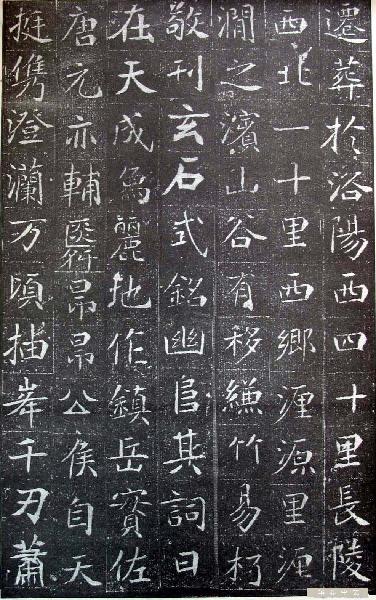 遷葬於洛陽西四十里長陵
西北一十里西鄉瀍源里瀍
澗之濱山谷有移縑竹易朽
敬刊玄石式銘幽扃其詞曰
在天成象麗地作鎮岳賓佐
唐元亦輔昂昂公侯自天
挺儁澄瀾万頃插峯千刃蕭